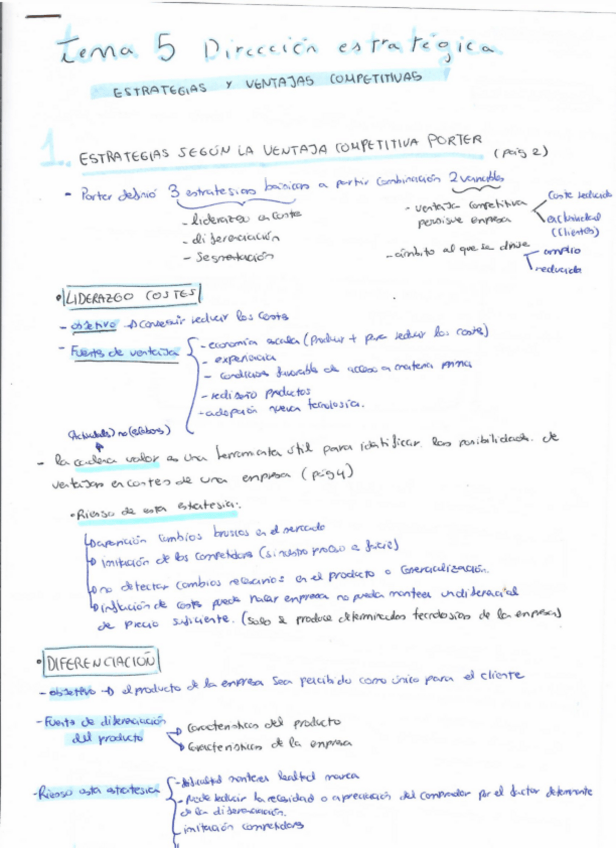 Tema 5 Dirección estratégica
ESTRATEGIAS Y VENTAJAS COMPETITIVAS
1. ESTRATEGIAS SEGÚN LA VENTAJA COMPETITIVA PORTER (pág 2)
- Porter definió 3 estrategias básicas a partir combinación 2 variables
- liderazgo en coste
- diferenciación
- Segmentación
- ventaja competitiva persigue empresa
coste reducido
exclusividad (clientes)
- ámbito al que se dirige
amplio
reducido
• LIDERAZGO COSTES
- objetivo → Conseguir reducir los costes
- Fuentes de ventaja
- economía escala (Producir + para reducir los costes)
- experiencia
- condiciones favorable de acceso a materia prima
- rediseño productos
- adopción nueva tecnología.
- la cadena valor es una herramienta útil para identificar las posibilidades de
ventajas en costes de una empresa (pág 4)
• Riesgo de esta estrategia:
aparición cambios bruscos en el mercado
imitación de los competidores (si nuestro precio es)
no detectar cambios necesarios en el producto o comercialización.
inflación de costes puede hacer empresa no pueda mantener un diferencial
de precio suficiente. (solo se produce determinadas tecnologías de la empresa)
• DIFERENCIACIÓN
- objetivo → el producto de la empresa sea percibido como único para el cliente
- Fuente de diferenciación
del producto
→ Características del producto
→ Características de la empresa
- Riesgo esta estrategia
- dificultad mantener lealtad marca
- puede reducir la necesidad o apreciación del comprador por el factor determinante
de la diferenciación.
imitación competidores